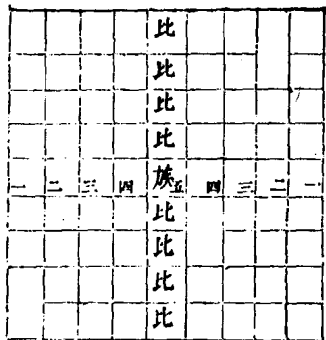 比
比
比
比
一 二 三 四 族 五 四 三 二 一
比
比
比
比